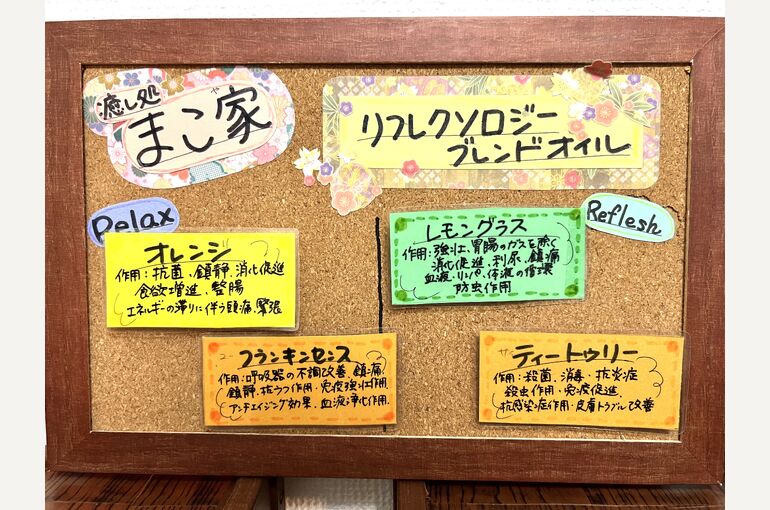 癒し処
まこ家
や
リフレクソロジー
ブレンドオイル
Relax
Reflesh
オレンジ
作用:抗菌、鎮静、消化促進
食欲増進、整腸
エネルギーの滞りに伴う頭痛、緊張
レモングラス
作用:強壮、胃腸のガスを除く
消化促進、利尿、鎮痛
血液・リンパ・体液の循環
防虫作用
フランキンセンス
作用:呼吸器の不調改善、鎮痛、
鎮静、抗うつ作用・免疫強壮作用
アンチエイジング効果、血液浄化作用
ティートゥリー
作用:殺菌、消毒・抗炎症
殺虫作用・免疫促進、
抗感染症作用・皮膚トラブル改善